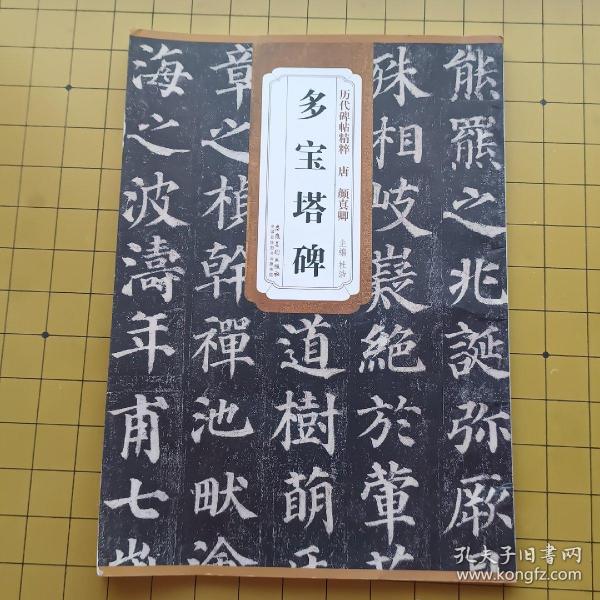 熊羆之北誕弥厥月
殊相岐嶷絕於葷
历代碑帖精粹 唐 颜真卿
主编 杜浩
多宝塔碑
安徽美术出版社
道樹萌
章之楨幹禪池畎澮
海之波濤年甫七歲
孔夫子旧书网
www.kongfz.com